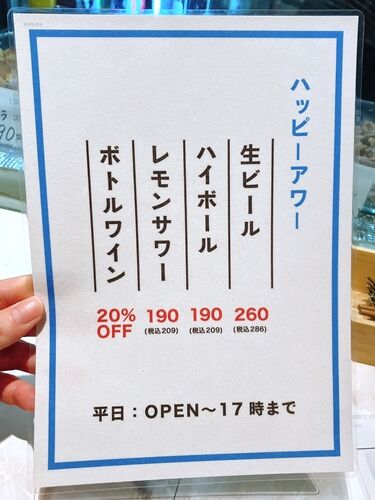 ハッピーアワー
生ビール
260
(税込286)
ハイボール
190
(税込209)
レモンサワー
190
(税込209)
ボトルワイン
20%
OFF
平日：OPEN〜17時まで